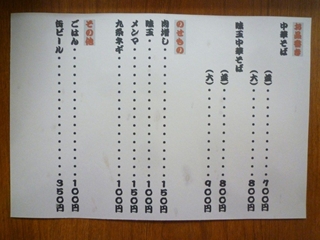 お品書き
中華そば
(並)・・・・・・・・・・700円
(大)・・・・・・・・・・800円
味玉中華そば
(並)・・・・・・・・・・800円
(大)・・・・・・・・・・900円
のせもの
肉増し・・・・・・・・・・・・150円
味玉・・・・・・・・・・・・・100円
メンマ・・・・・・・・・・・・150円
九条ネギ・・・・・・・・・・・100円
その他
ごはん・・・・・・・・・・・・100円
缶ビール・・・・・・・・・・・350円